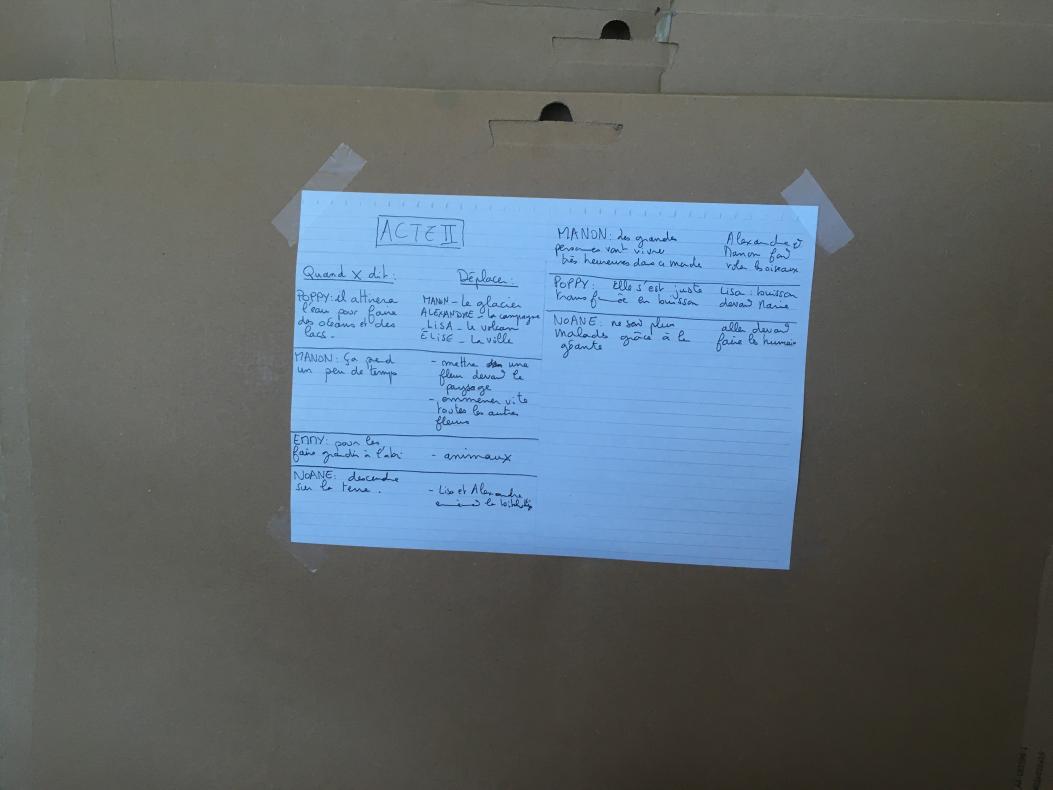 ACTE II
Quand X dit :
Déplacer :
POPPY : il attirera
l'eau pour faire
des océans et des
lacs.
MANON - le glacier
ALEXANDRE - la campagne
LISA - le volcan
ÉLISE - La ville
MANON : Ça prend
un peu de temps
- mettre une
fleur devant le
paysage
- emmener vite
toutes les autres
fleurs
EMMY : pour les
faire grandir à l'abri
- animaux
NOANE : descendre
sur la terre.
- Lisa et Alexandre
la
MANON : des grandes
personnes vont vivre
très heureuses dans ce monde
Alexandre et
Manon font
voler les oiseaux
POPPY : Elle s'est juste
transformée en buisson
Lisa : buisson
devant Marie
NOANE : ne sont plus
malades grâce à la
géante
aller devant
faire les humains